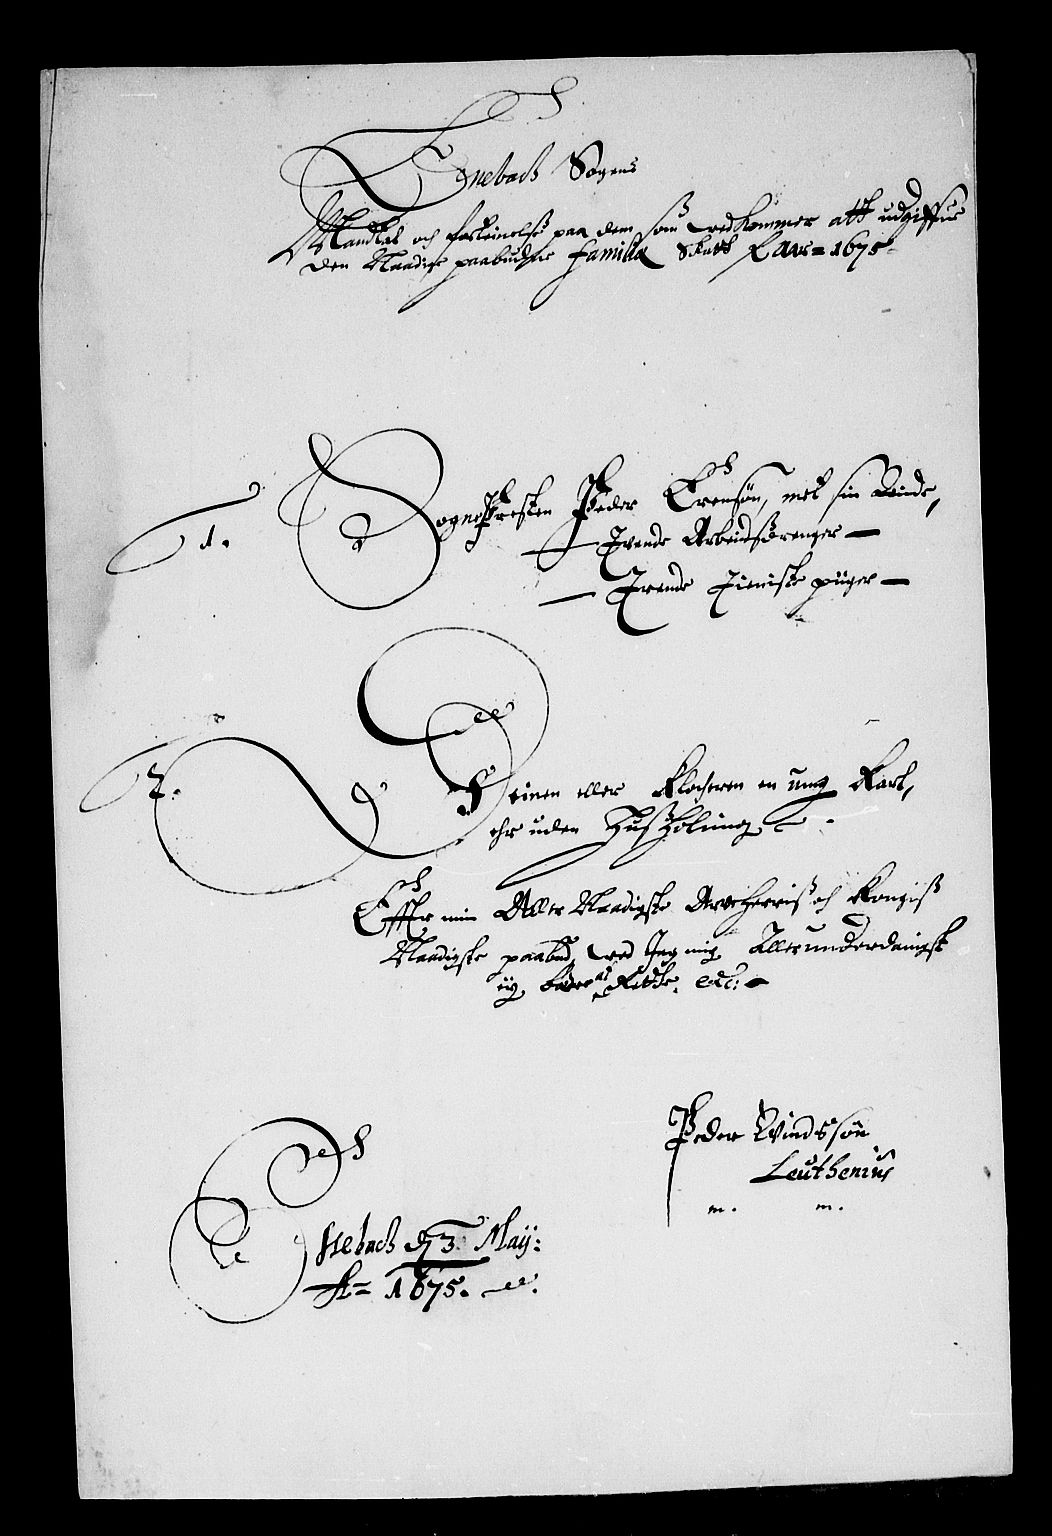 Enebach Sogens
Mandtal och forteinelse paa dem som vedkommer att udgiffue
den Naadige paabudne familie Skatt Ao = 1675 =
1. SognePresten Peder Erensøn, met sin quinde,
— Tvende Arbeidsdrenger —
— Tvende Tieniste piiger —
2. Deinen eller Klocheren en ung Karl,
ehr uden Huszholning
Effter min Aller Naadigste Arfveherris och Kongis
Naadigste paabud, ved Jeg mig Allerunderdanigst
iij bedre at Rette. etc:
Peder Eivindssøn
Leuthenius
m. m.
Enebach dj 3 Maij:
Ao = 1675.